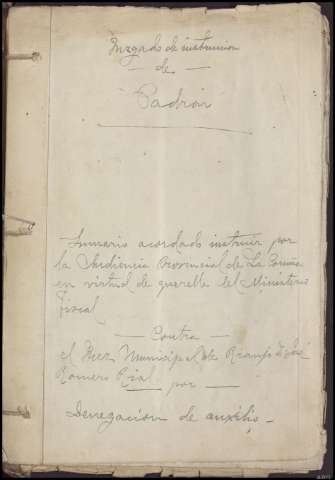 Juzgado de instruccion
— de —
Padrón
Sumario acordado instruir por
la Audiencia Provincial de La Coruña
en virtud de querella del Ministerio
fiscal
— Contra —
el Juez Municipal de José
Romero Rial — por —
Denegacion de auxilio —